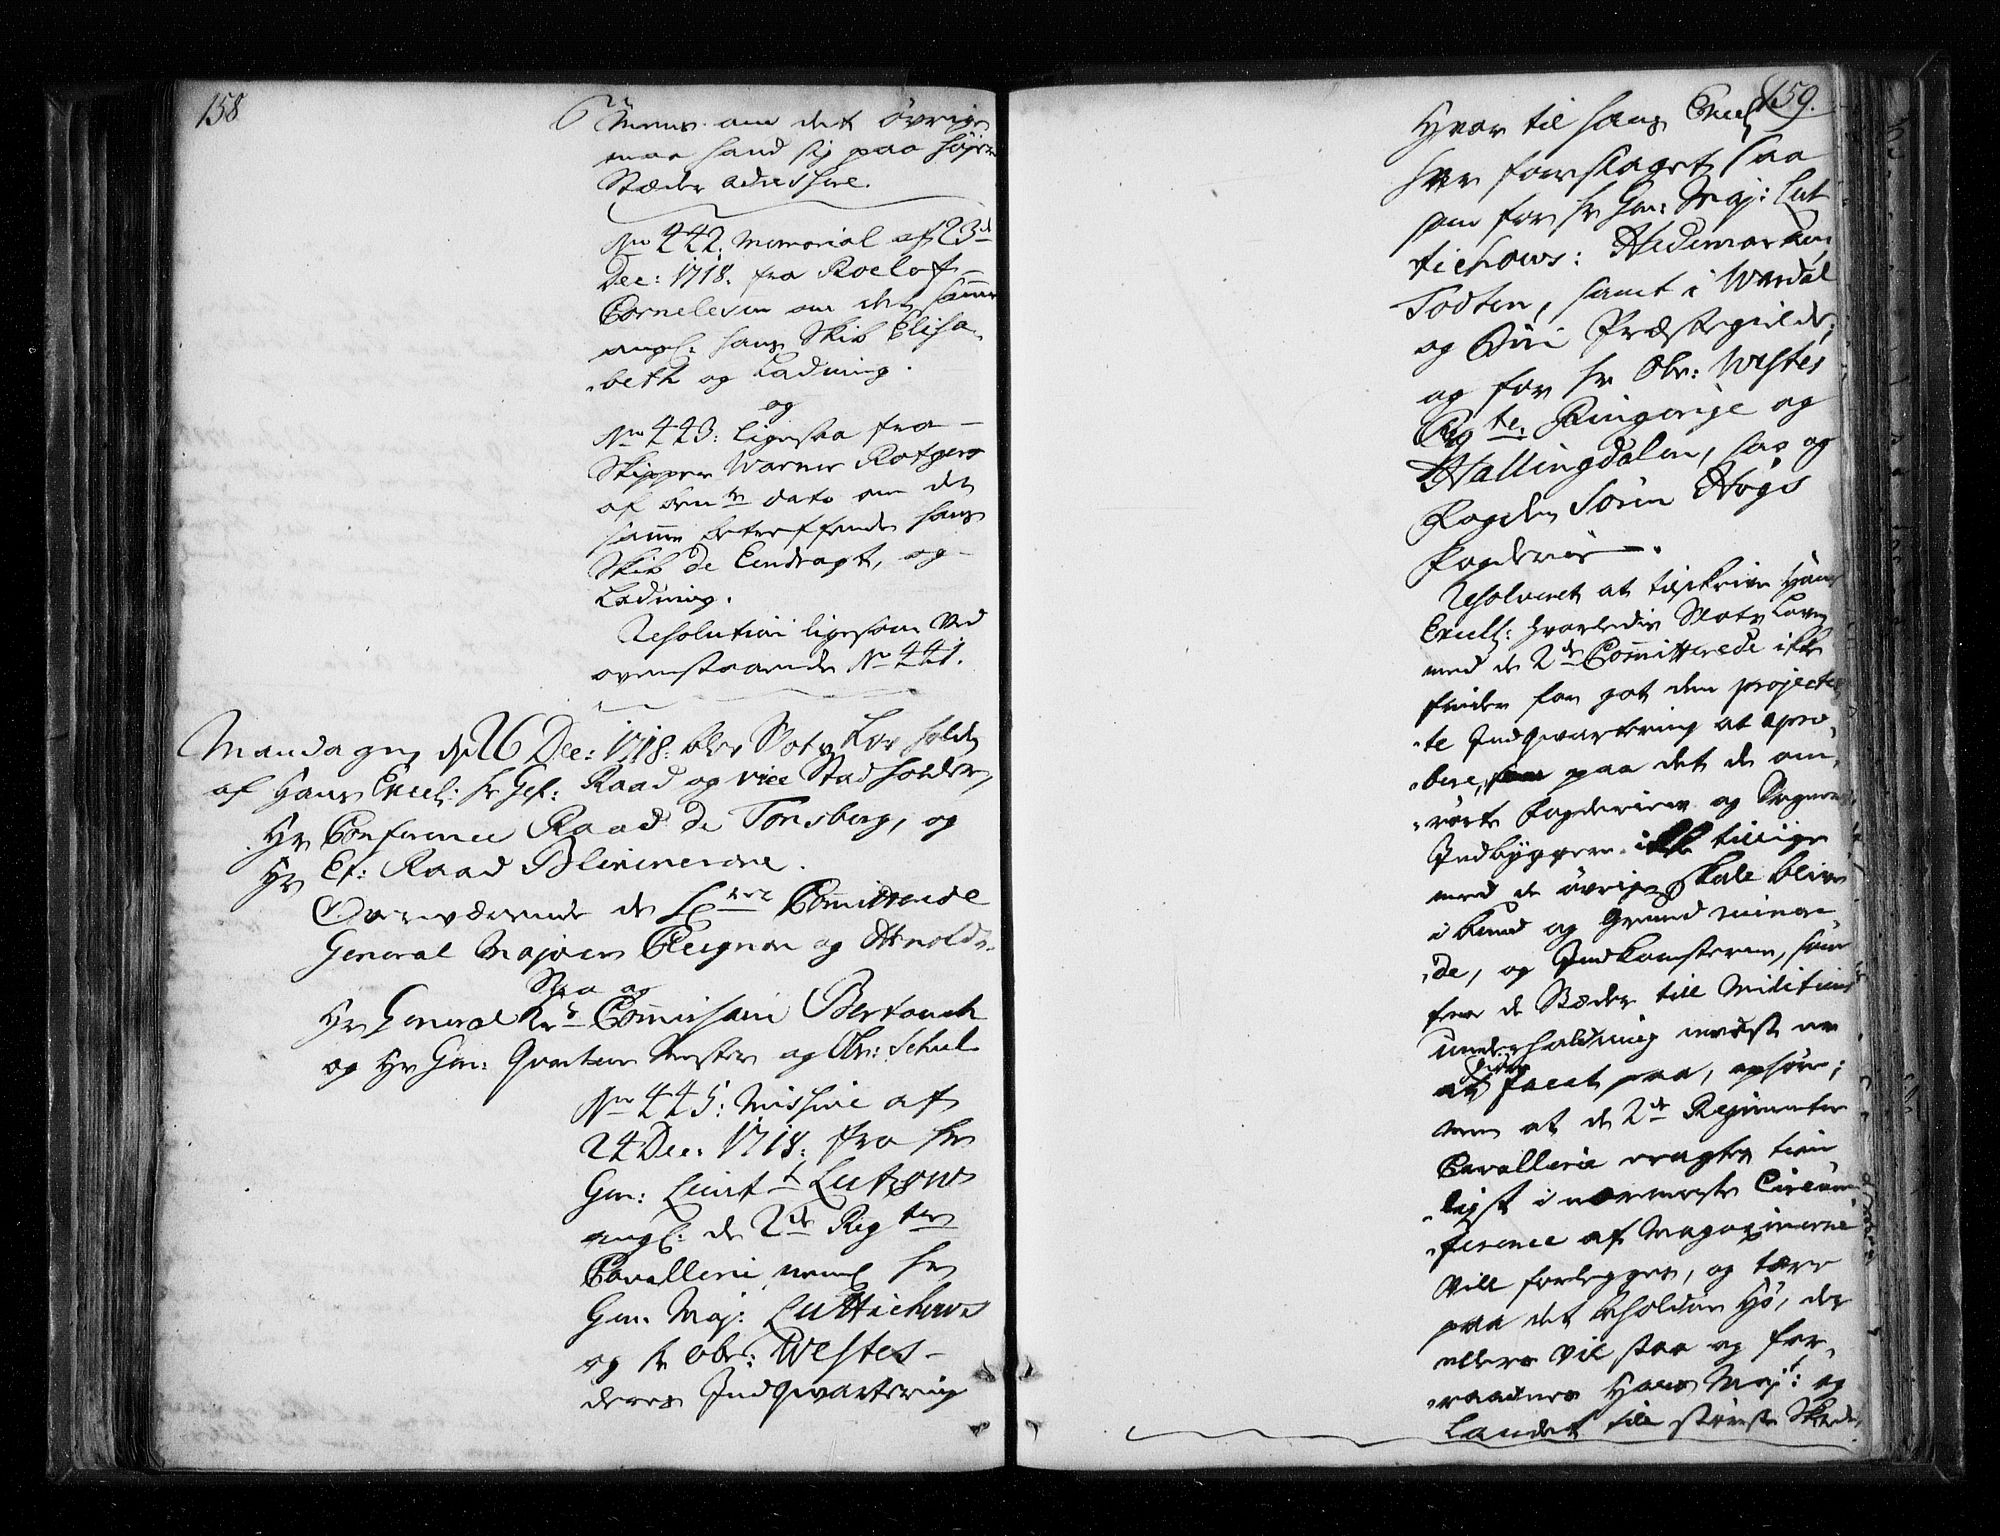 158
Mens om det øvrige
maa hand sig paa høyere
Stæder adressere.
No 442. Memorial af 23de
Dec: 1718. fra Roelof
Cornelesen om det samme
angl: hans Skib Elisa-
beth og Ladning.
og
No 443: ligesaa fra
Skipper Warner Rotgers
af dem te dato om det
samme betreffende hans
Skib de Eendragt, og
Ladning.
Resolution ligesom ved
ovenstaaende No 441.
Mandagen d 26 Dec: 1718. blev Slots Lov holdt
af Hans Excel: hr Geh: Raad og vice Stadholder,
Hr Conference Raad de Tonsberg, og
Hr Et: Raad Blixencrone.
Overværende de Hrrer Committerede
General Majorer Cicignon og Arnoldt
Saa og
Hr General Krs Commissari Bertouch
og Hr Gen: Qvarteer Mester og Obr: Schul
No 445: Missive af
24 Dec: 1718: fra hr
Gen: Lieut Lutzow
angl: de 2de Regter
Cavallerie nemel hr
Gen. Maj: Luttichows
og hr obr: Westes
deres Indqvartering
159.
Hvor til hans Excell
har forslaget saa
som for hr Gen: Maj: Lut
tichows: Hedemarken
Todten, samt i Wardal
og Biri Præstegield;
og for hr Obr: Westes
Regte. Ringerige og
Hallingdalen, saa og
Fogden Sören Høgs
Fogderie.
Resolveret at tilskrive Hans
Excell: hvorledis Slots Loven
med de 2de Committerede ikke
finder for got den projecter
te Indqvartering at apro-
bere, paa det de om-
rörte Fogderier og Sognes
Indbyggere ikke tillige
med de övrige skale blive
i bund og Grund ruinere-
de, og Indkomsterne, som
fra de Stæder till Militiens
underholdning meest er
facit paa, ophöre;
men at de 2de Regimenter
Cavallerie eragtes tien
ligst i nærmeste Circum-
ference af Magazinerne
vill forlegges, og tære
paa det beholdne Hø, der
ellers vil staa og for-
raadnes Hans Mayt: og
Landet till störste Skade.